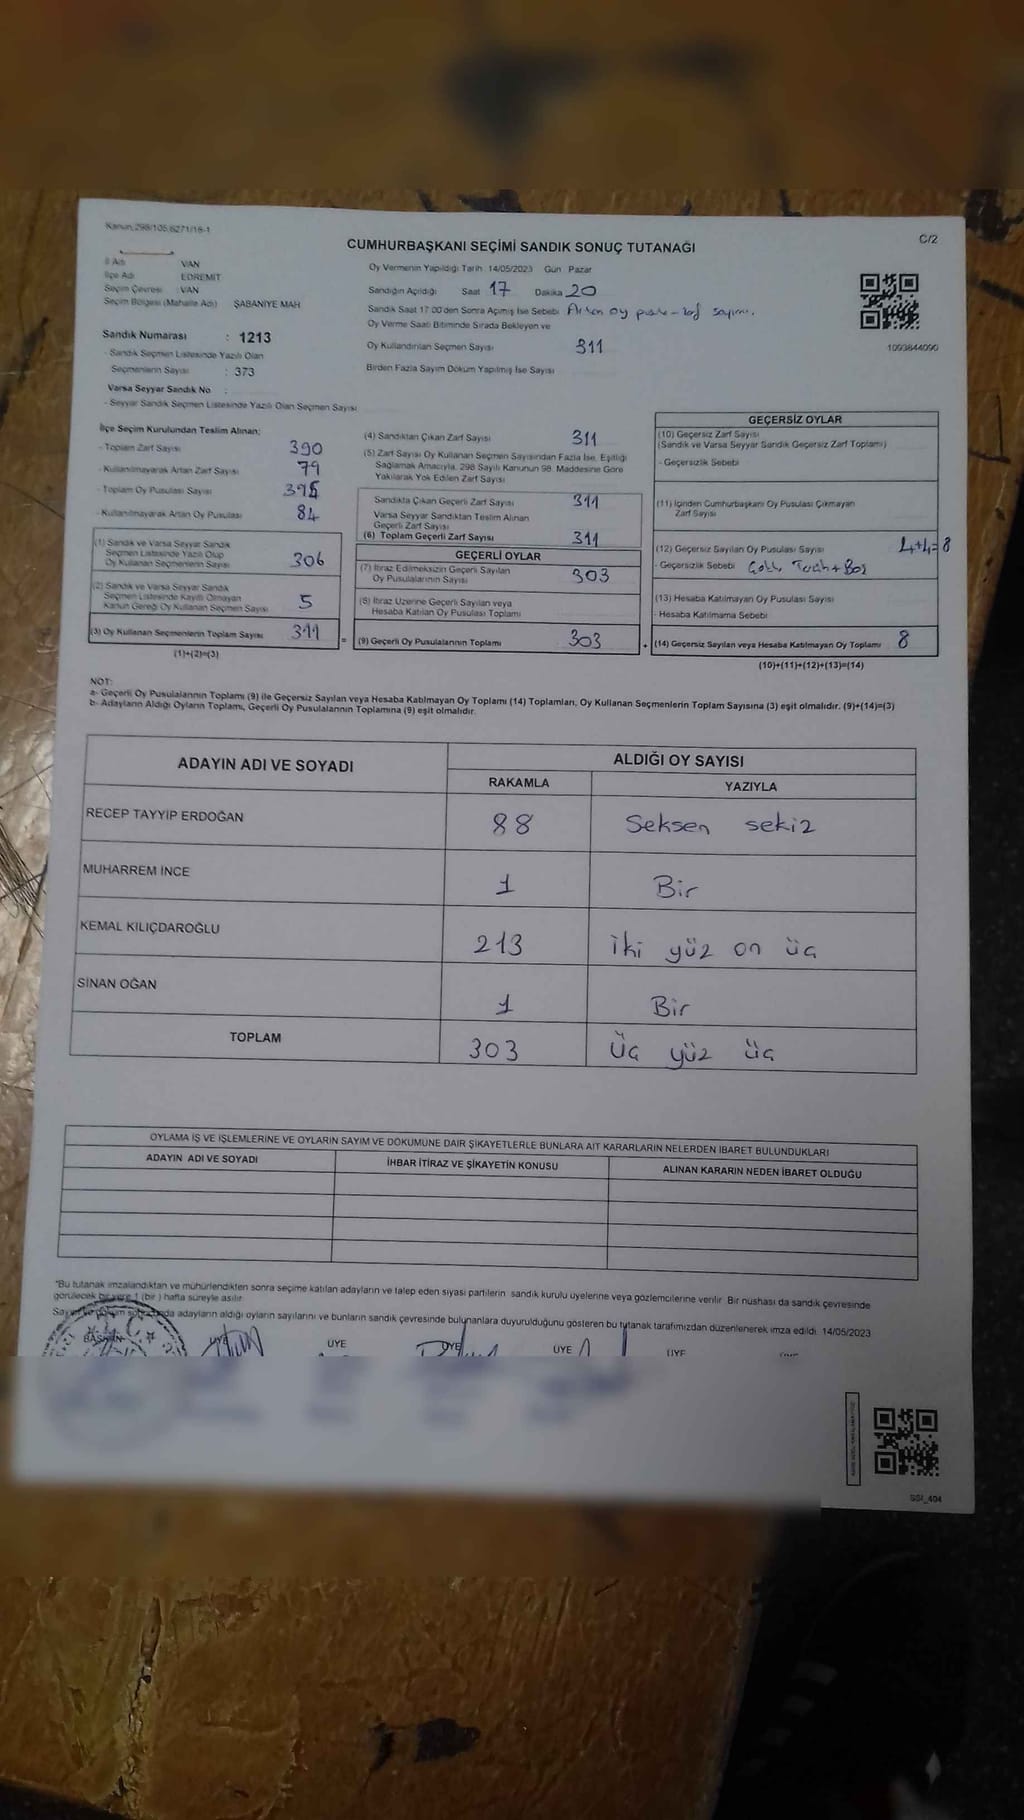 Kanun,298/105,6271/16-1
C/2
CUMHURBAŞKANI SEÇİMİ SANDIK SONUÇ TUTANAĞI
İl Adı VAN
İlçe Adı EDREMİT
Seçim Çevresi : VAN
Seçim Bölgesi (Mahalle Adı) ŞABANİYE MAH
Sandık Numarası : 1213
- Sandık Seçmen Listesinde Yazılı Olan
Seçmenlerin Sayısı : 373
Varsa Seyyar Sandık No :
- Seyyar Sandık Seçmen Listesinde Yazılı Olan Seçmen Sayısı
Oy Vermenin Yapıldığı Tarih :14/05/2023 Gün Pazar
Sandığın Açıldığı Saat 17 Dakika 20
Sandık Saat 17.00'den Sonra Açılmış İse Sebebi Artan oy pusla-zarf sayımı.
Oy Verme Saati Bitiminde Sırada Bekleyen ve
Oy Kullandırılan Seçmen Sayısı 311
Birden Fazla Sayım Döküm Yapılmış İse Sayısı
1093844090
İlçe Seçim Kurulundan Teslim Alınan;
- Toplam Zarf Sayısı 390
- Kullanılmayarak Artan Zarf Sayısı 79
- Toplam Oy Pusulası Sayısı 395
- Kullanılmayarak Artan Oy Pusulası 84
(1) Sandık ve Varsa Seyyar Sandık
Seçmen Listesinde Yazılı Olup
Oy Kullanan Seçmenlerin Sayısı 306
(2) Sandık ve Varsa Seyyar Sandık
Seçmen Listesinde Kayıtlı Olmayan
Kanun Gereği Oy Kullanan Seçmen Sayısı 5
(3) Oy Kullanan Seçmenlerin Toplam Sayısı 311
(1)+(2)=(3)
(4) Sandıktan Çıkan Zarf Sayısı 311
(5) Zarf Sayısı Oy Kullanan Seçmen Sayısından Fazla İse, Eşitliği
Sağlamak Amacıyla, 298 Sayılı Kanunun 98. Maddesine Göre
Yakılarak Yok Edilen Zarf Sayısı
Sandıkta Çıkan Geçerli Zarf Sayısı 311
Varsa Seyyar Sandıktan Teslim Alınan
Geçerli Zarf Sayısı
(6) Toplam Geçerli Zarf Sayısı 311
GEÇERLİ OYLAR
(7) İtiraz Edilmeksizin Geçerli Sayılan
Oy Pusulalarının Sayısı 303
(8) İtiraz Üzerine Geçerli Sayılan veya
Hesaba Katılan Oy Pusulası Toplamı
=
(9) Geçerli Oy Pusulalarının Toplamı 303
+
GEÇERSİZ OYLAR
(10) Geçersiz Zarf Sayısı
(Sandık ve Varsa Seyyar Sandık Geçersiz Zarf Toplamı)
- Geçersizlik Sebebi
(11) İçinden Cumhurbaşkanı Oy Pusulası Çıkmayan
Zarf Sayısı
(12) Geçersiz Sayılan Oy Pusulası Sayısı 4+4=8
- Geçersizlik Sebebi + Boş
(13) Hesaba Katılmayan Oy Pusulası Sayısı
- Hesaba Katılmama Sebebi
(14) Geçersiz Sayılan veya Hesaba Katılmayan Oy Toplamı 8
(10)+(11)+(12)+(13)=(14)
NOT:
a- Geçerli Oy Pusulalarının Toplamı (9) ile Geçersiz Sayılan veya Hesaba Katılmayan Oy Toplamı (14) Toplamları, Oy Kullanan Seçmenlerin Toplam Sayısına (3) eşit olmalıdır. (9)+(14)=(3)
b- Adayların Aldığı Oyların Toplamı, Geçerli Oy Pusulalarının Toplamına (9) eşit olmalıdır.
ADAYIN ADI VE SOYADI
ALDIĞI OY SAYISI
RAKAMLA YAZIYLA
RECEP TAYYİP ERDOĞAN 88 Seksen sekiz
MUHARREM İNCE 1 Bir
KEMAL KILIÇDAROĞLU 213 iki yüz on üç
SİNAN OĞAN 1 Bir
TOPLAM 303 Üç yüz üç
OYLAMA İŞ VE İŞLEMLERİNE VE OYLARIN SAYIM VE DÖKÜMÜNE DAİR ŞİKAYETLERLE BUNLARA AİT KARARLARIN NELERDEN İBARET BULUNDUKLARI
ADAYIN ADI VE SOYADI İHBAR İTİRAZ VE ŞİKAYETİN KONUSU ALINAN KARARIN NEDEN İBARET OLDUĞU
*Bu tutanak imzalandıktan ve mühürlendikten sonra seçime katılan adayların ve talep eden siyasi partilerin sandık kurulu üyelerine veya gözlemcilerine verilir. Bir nüshası da sandık çevresinde
görülecek bir yere 1 (bir ) hafta süreyle asılır
adayların aldığı oyların sayılarını ve bunların sandık çevresinde bulunanlara duyurulduğunu gösteren bu tutanak tarafımızdan düzenlenerek imza edildi. 14/05/2023
BAŞKAN ÜYE ÜYE ÜYE ÜYE ÜYE
SSI_404